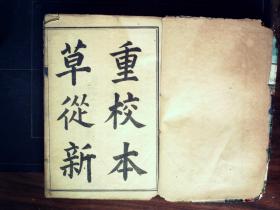 重校本
草從新